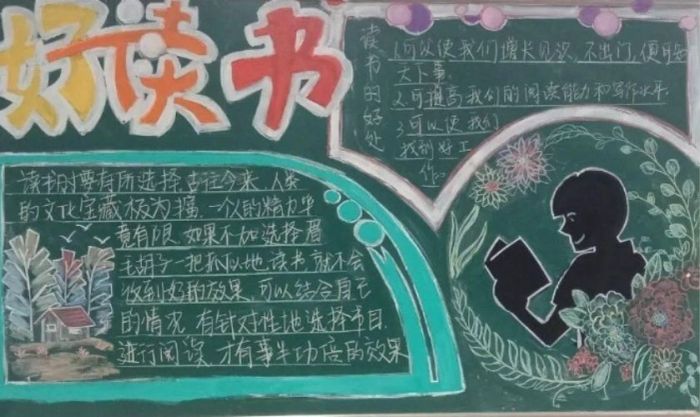 好读书
读书的好处
1.可以使我们增长见识,不出门,便可知
天下事.
2.可提高我们的阅读能力和写作水平
3.可以使我们
找到好工
作.
读书时要有所选择,古往今来,人类
的文化宝藏极为丰富,一个人的精力毕
竟有限,如果不加选择眉
毛胡子一把抓似地读书,就不会
收到好的效果,可以结合自己
的情况,有针对性地选择书目.
进行阅读,才有事半功倍的效果